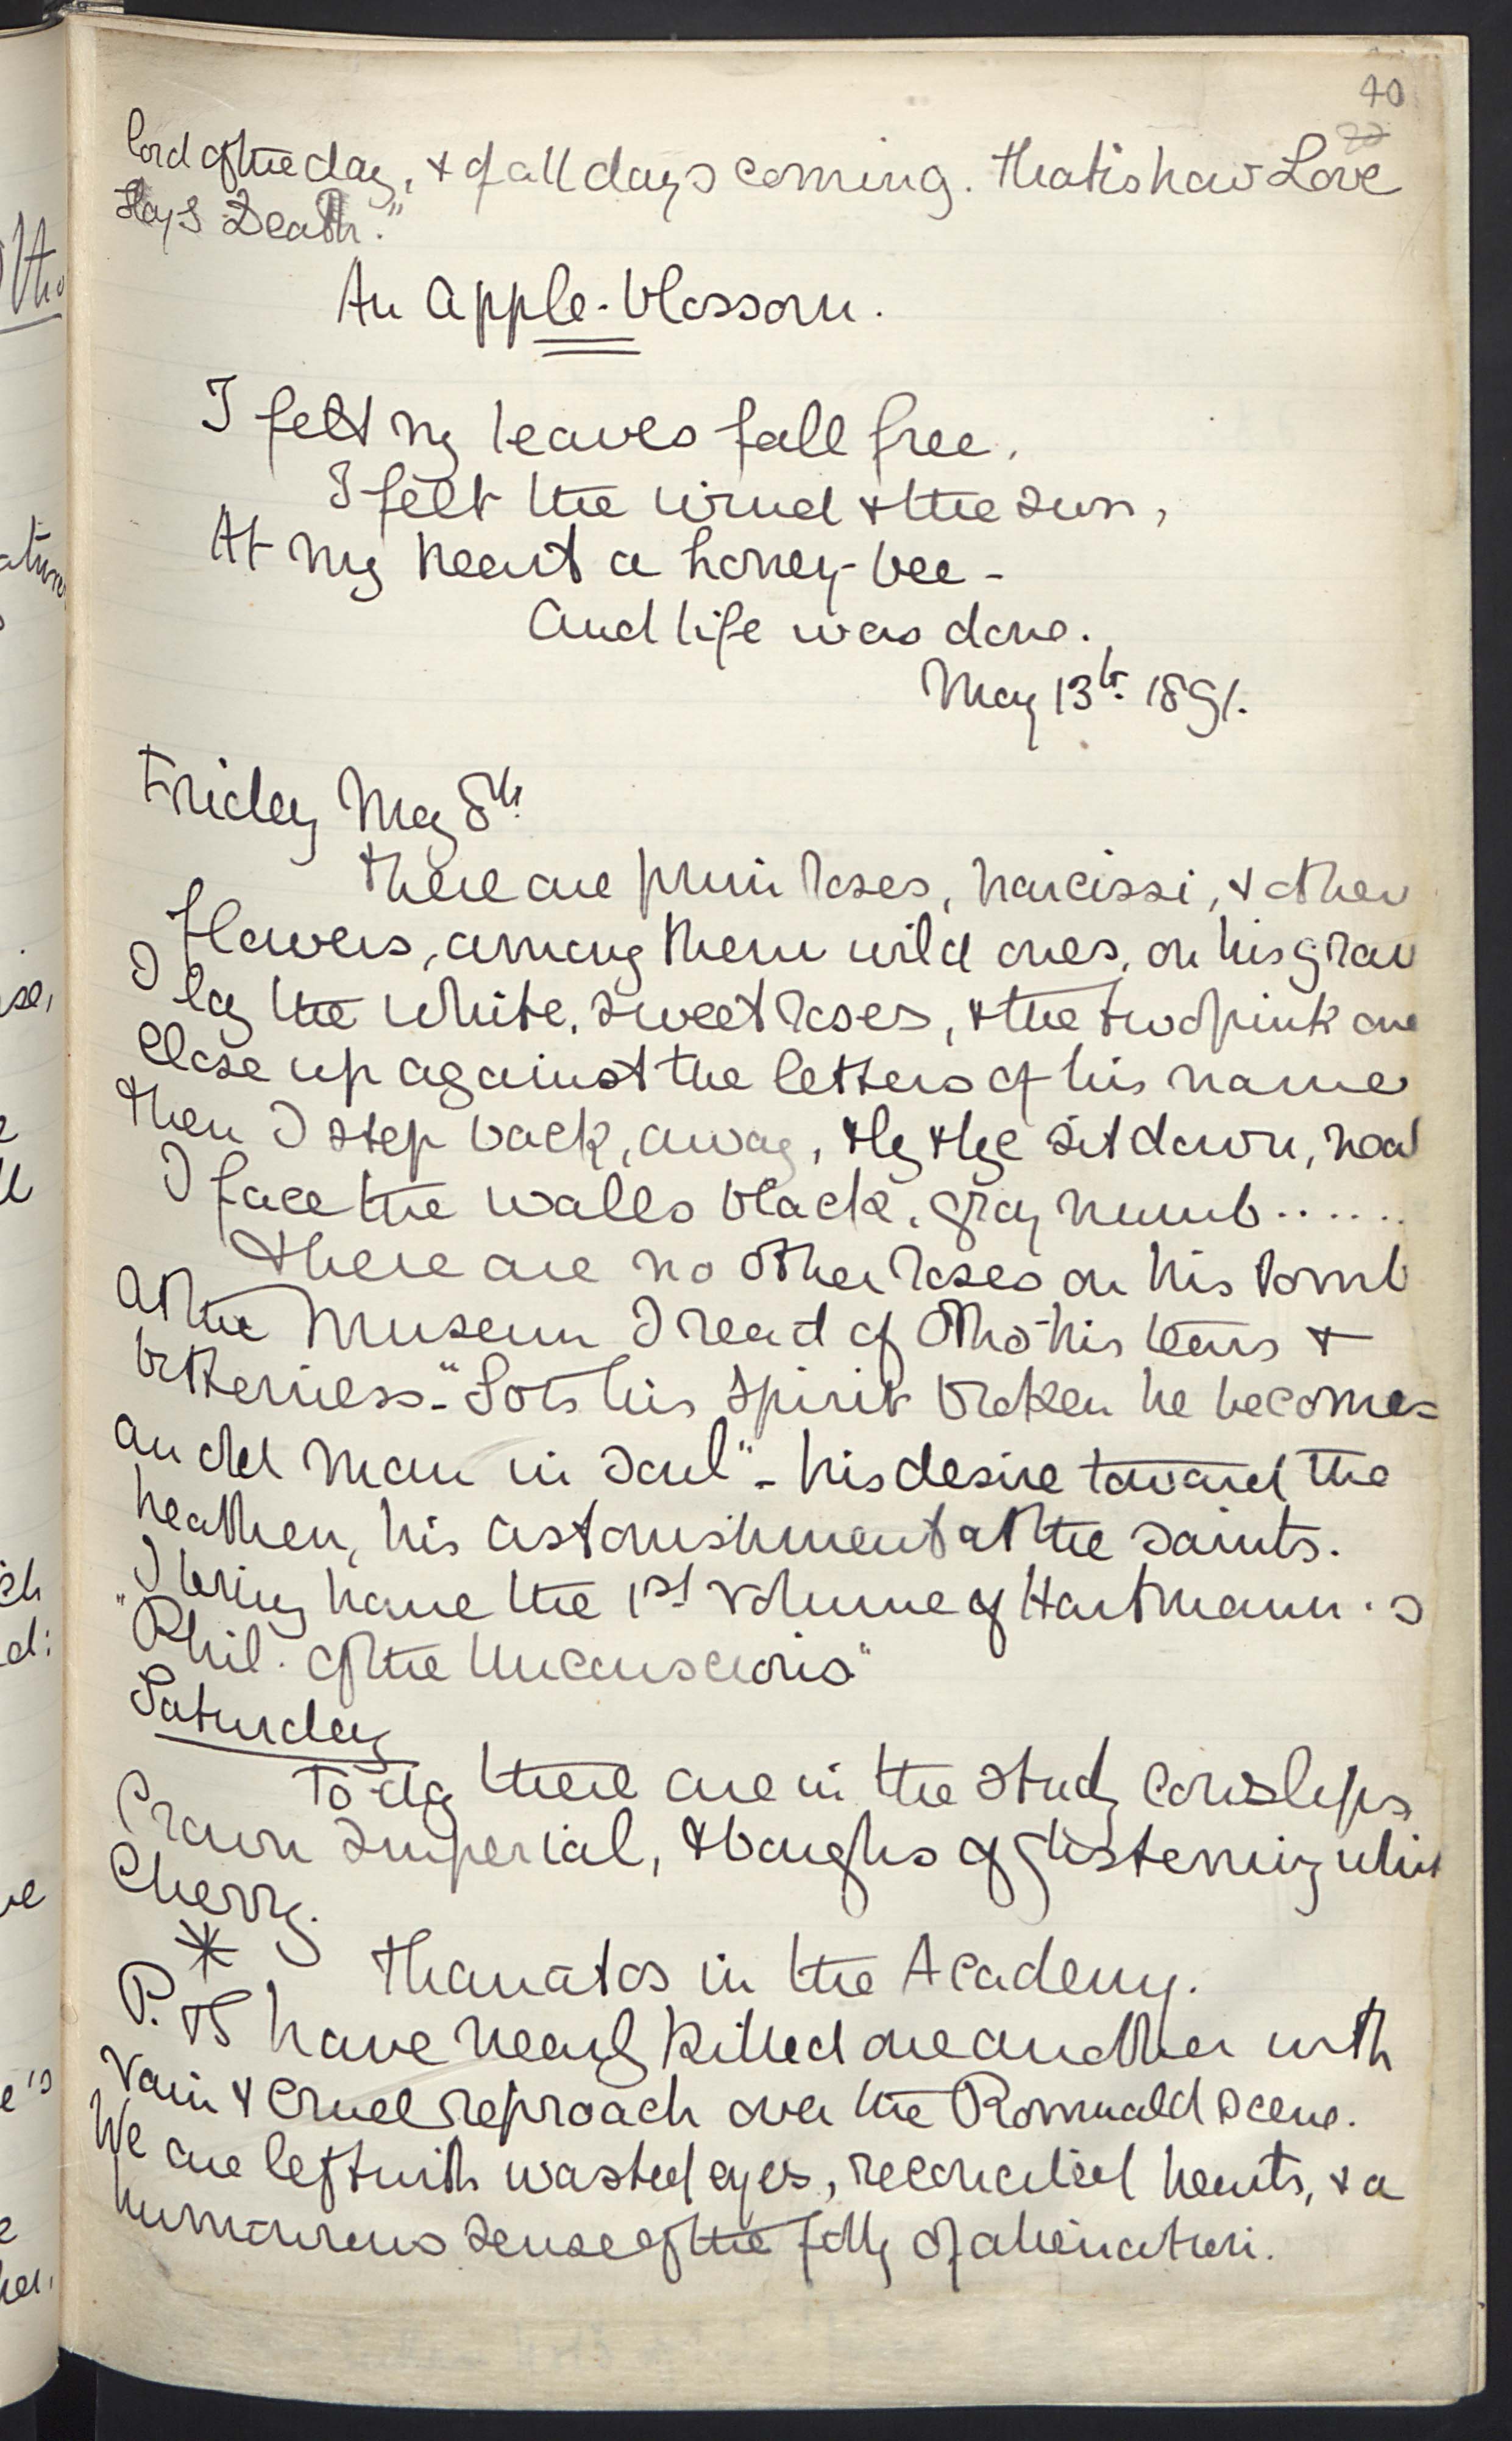 40
lord of the day, & of all days coming. That is how Love
slays Death."
An Apple-blossom.
I felt my leaves fall free,
I felt the wind & the sun,
At my heart a honey-bee -
And life was done.
May 13th 1891.
Friday May 8th
There are primroses, narcissi, & other
flowers, among them wild ones, on his grav
I lay the white, sweet roses, & the two pink one
close up against the letters of his name
Then I step back, away, & sit down,
I face the walls black, gray numb......
There are no other roses on his tomb
At the Museum I read of Otho - his tears &
bitterness - "Lots his spirit broken he becomes
an old man in soul" - his desire toward the
heathen, his astonishment at the saints.
I bring home the 1st volume of Hartmann's
"Phil. of the Unconscious"
Saturday
To-day there are in the study cowslips,
Crown Imperial, & boughs of glistening whit
Cherry.
* Thanatos in the Academy.
P. & I have nearly killed one another with
vain & cruel reproach over the Romuald scene.
We are left with wasted eyes, reconciled hearts, & a
humourous sense of the folly of alienation.